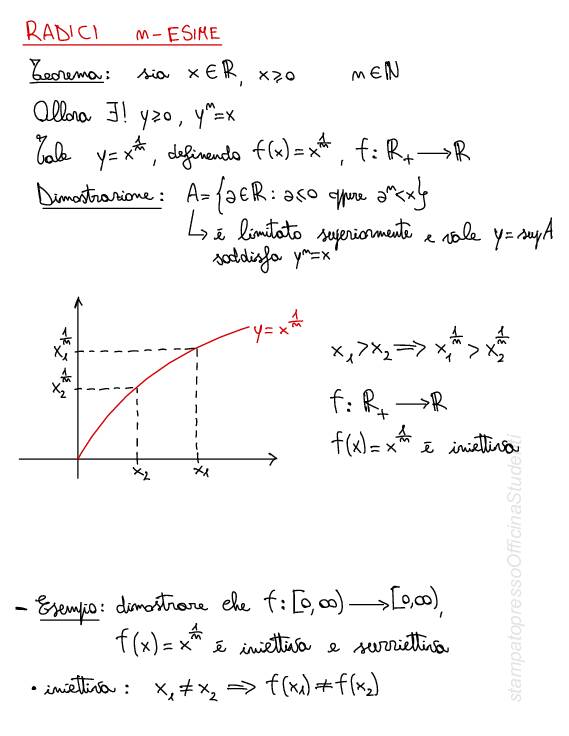 RADICI n-ESIME
Teorema: sia x∈ℝ, x⩾0 n∈ℕ
Allora ∃! y⩾0, yⁿ=x
Vale y=x^(1/n), definendo f(x)=x^(1/n), f: ℝ₊⟶ℝ
Dimostrazione: A={a∈ℝ: a⩽0 oppure aⁿ<x}
↳ è limitato superiormente e vale y=supA
soddisfa yⁿ=x
y=x^(1/n)
x₁^(1/n)
x₂^(1/n)
x₂ x₁
x₁>x₂ ⟹ x₁^(1/n) > x₂^(1/n)
f: ℝ₊⟶ℝ
f(x)=x^(1/n) è iniettiva
- Esempio: dimostrare che f:[0,∞)⟶[0,∞),
f(x)=x^(1/n) è iniettiva e surriettiva
• iniettiva: x₁≠x₂ ⟹ f(x₁)≠f(x₂)
stampatopressoOfficinaStudenti